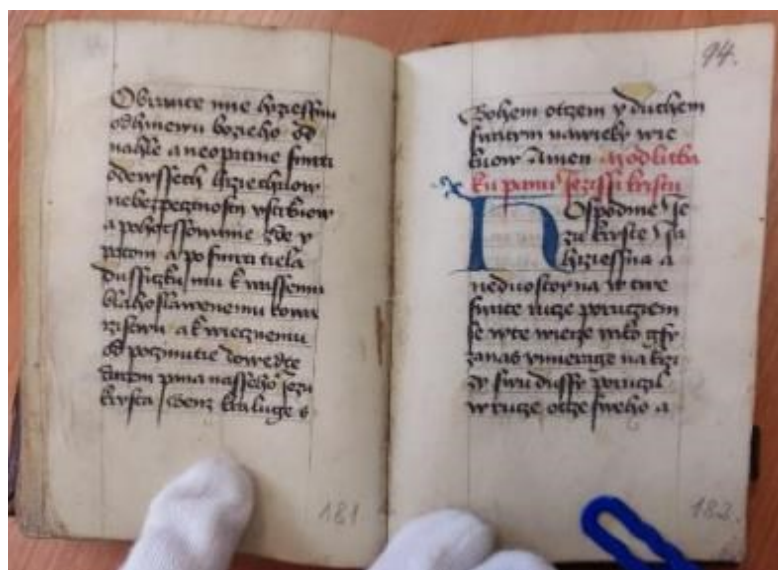 Obrante mne hrziessnu
od hniewu bozieho od
nahle a neopatrne smrti
ode wssech hrziechuow
nebezpecznosti vstrkuow
a pohorssowanie zde y
potom a po smrti tiela
dussiczku mu k wassemu
blahoslawenemu towa
rzistwu a k wiecznemu
od poczinutie dowedte
skrzem pana nasseho jezu
krysta jhenz kraluge s
94.
Bohem otczem y duchem
swatym na wieky wie
kuow Amen Modlitba
ku panu Jezissi kristu
HOspodine Je
zu kryste Ja
hrziessna a
neduostojna w twe
swate rucze porucziem
se w te wierze jako gsy
za nas vmierage na krzi
zy swu dussy poruczil
w rucze otcze sweho a
181
182.